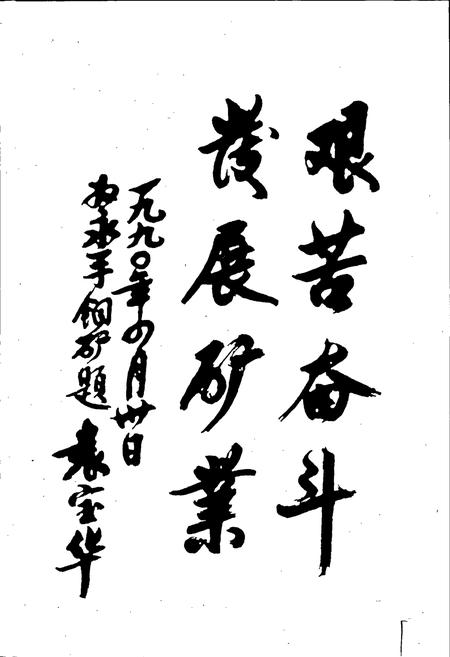 艰苦奋斗
发展矿業
一九九〇年四月卅日
为永平铜矿题 袁宝华